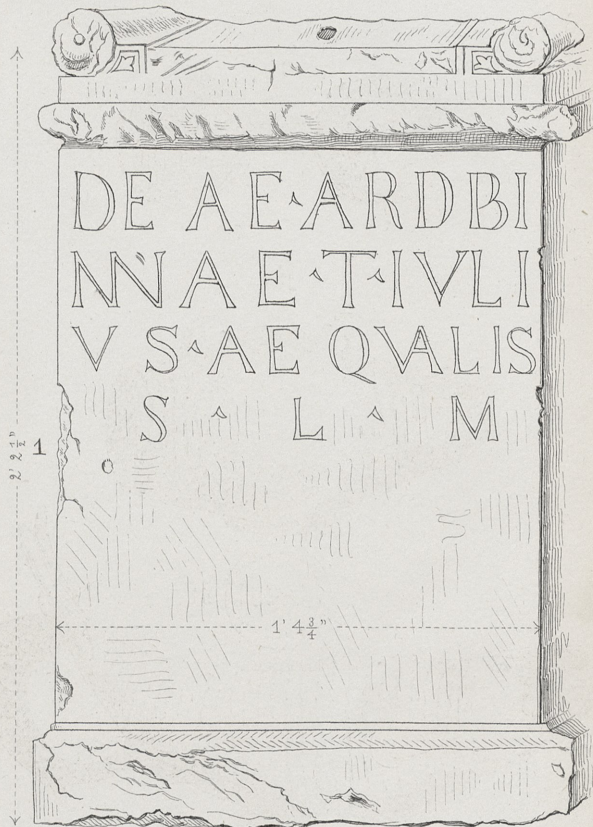 DEAE·ARDBI
NNAE·T·IVLI
VS·AEQVALIS
S · L · M
1
2' 2 1/2"
1' 4 3/4"